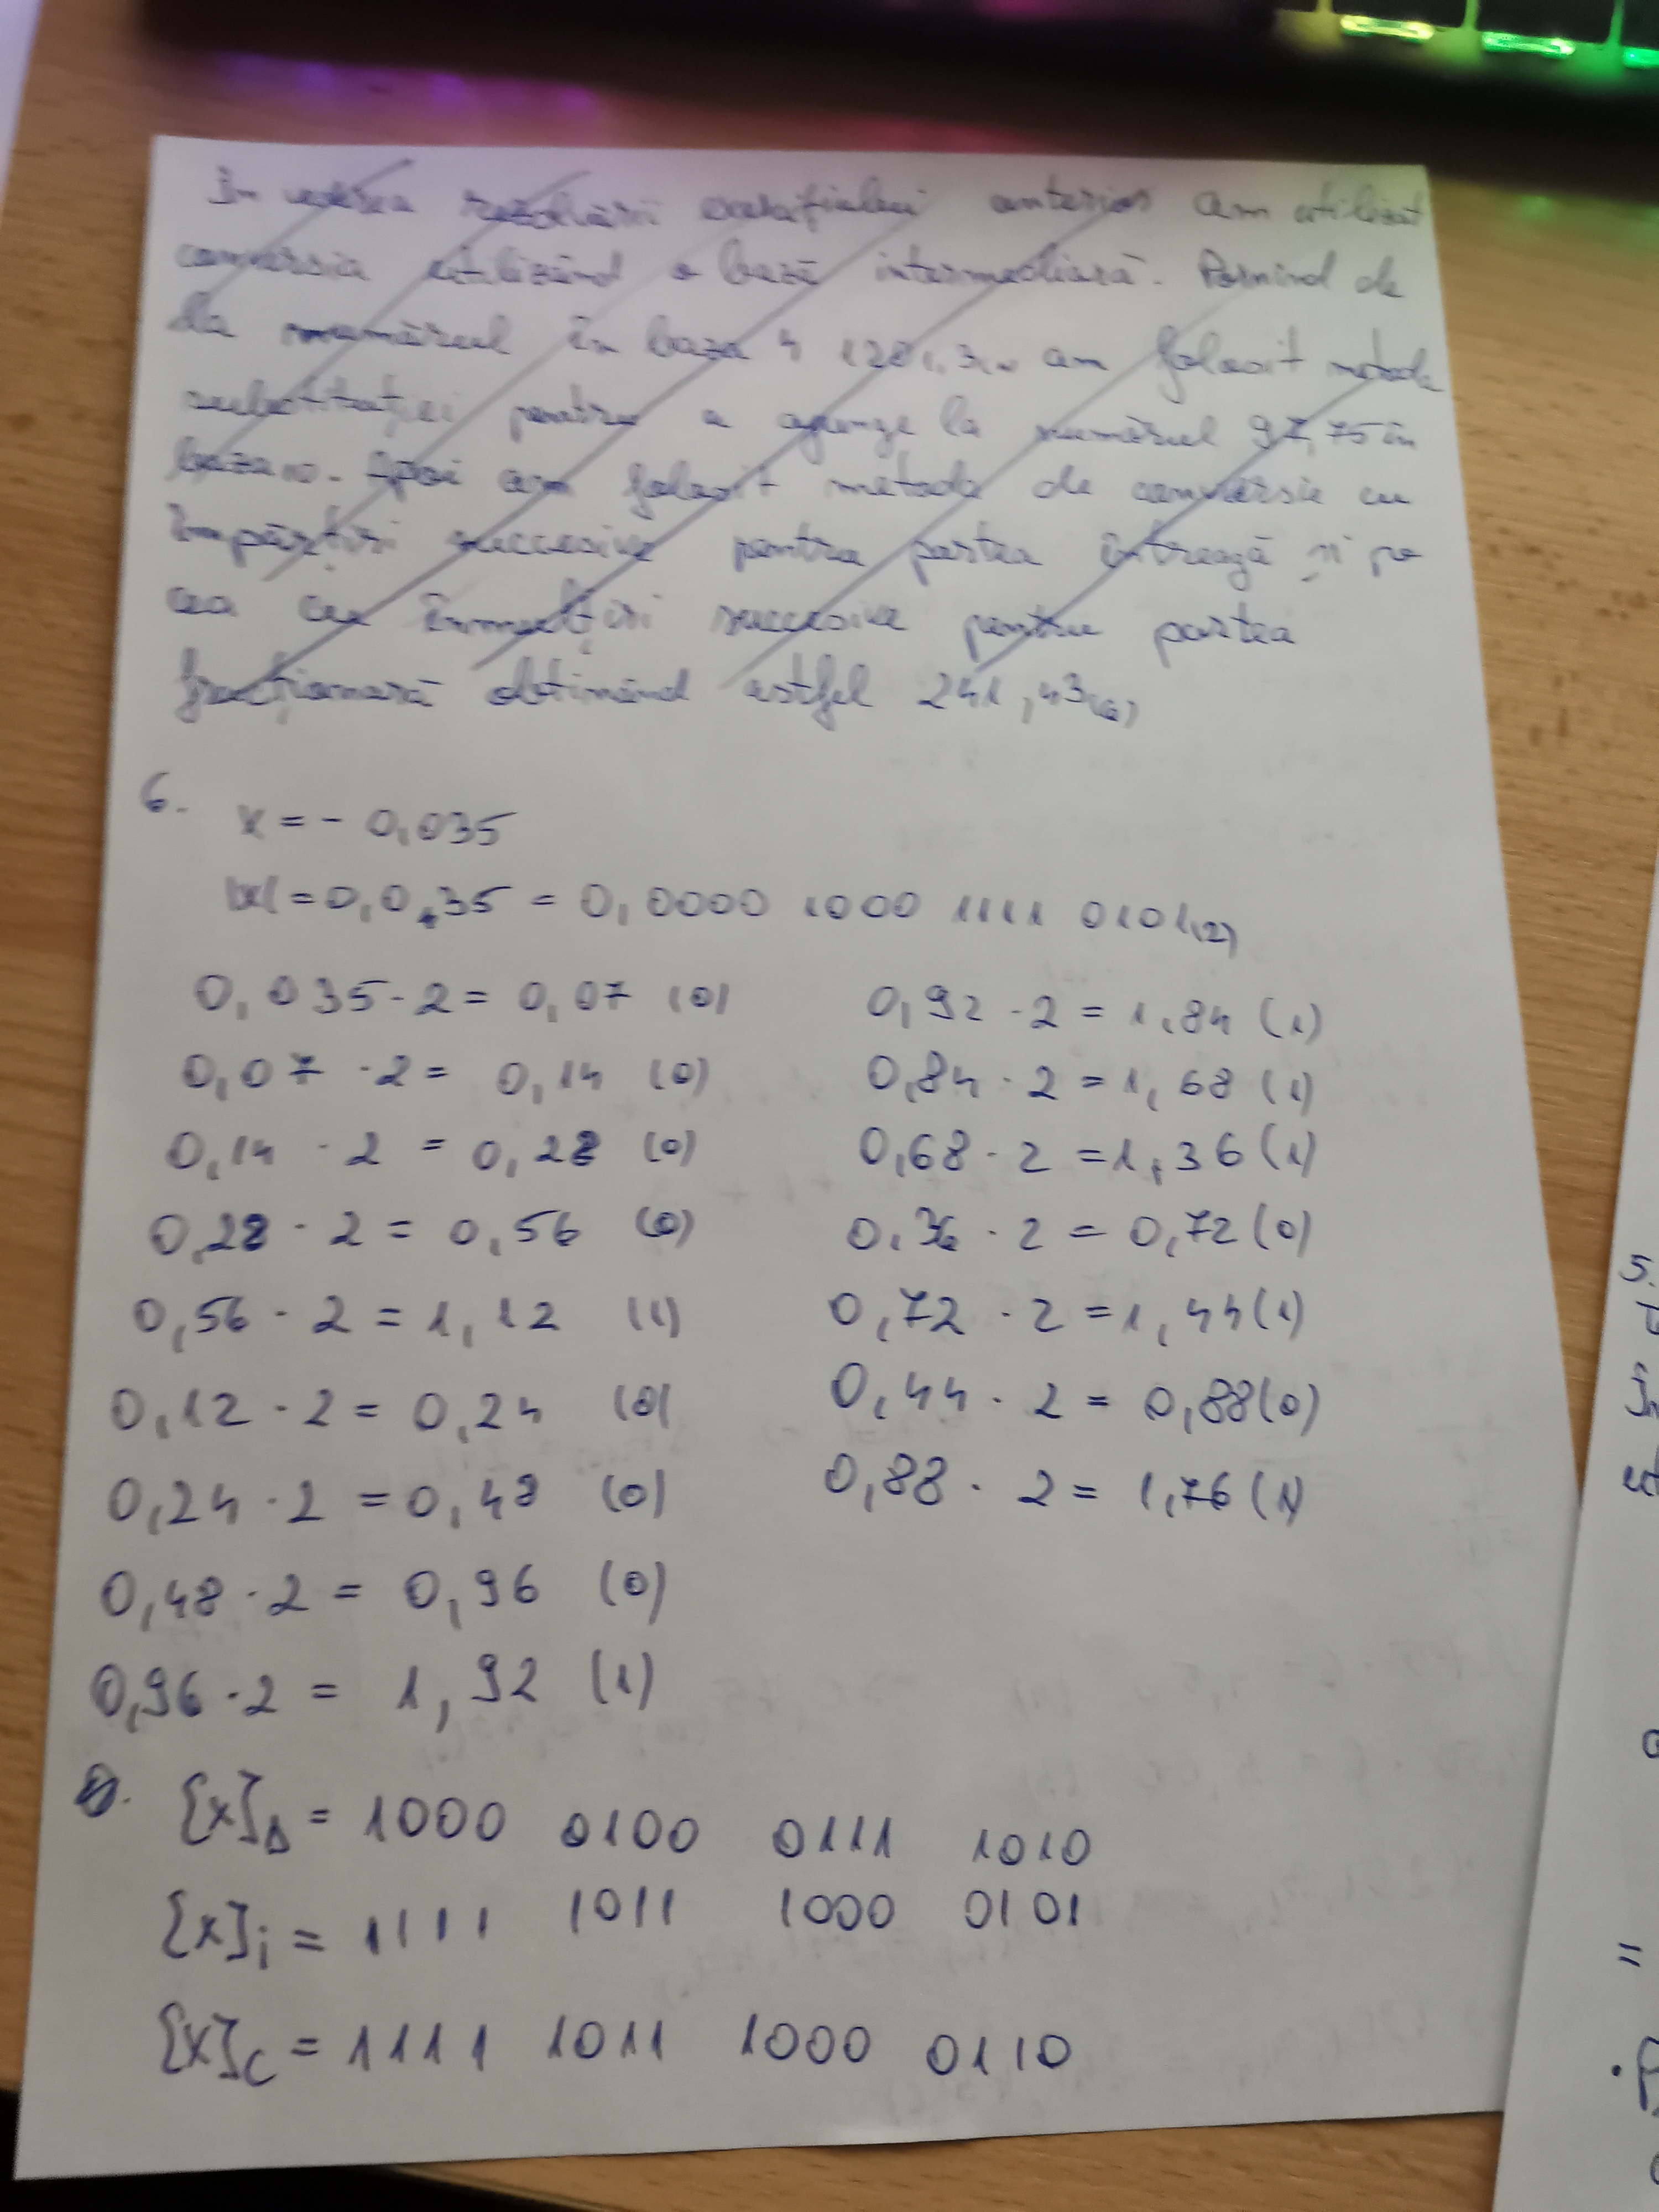 În vederea rezolvării exercițiului anterior am utilizat
conversia utilizând o bază intermediară. Pornind de
la numărul în baza 4 1201,3(4) am folosit metoda
substituției pentru a ajunge la numărul 97,75 în
baza 10. Apoi am folosit metoda de conversie cu
împărțiri succesive pentru partea întreagă și pe
cea cu înmulțiri succesive pentru partea
fracționară obținând astfel 241,43(6)
6. x = - 0,035
|x| = 0,035 = 0,0000 1000 1111 0101(2)
0,035 · 2 = 0,07 (0)
0,07 · 2 = 0,14 (0)
0,14 · 2 = 0,28 (0)
0,28 · 2 = 0,56 (0)
0,56 · 2 = 1,12 (1)
0,12 · 2 = 0,24 (0)
0,24 · 2 = 0,48 (0)
0,48 · 2 = 0,96 (0)
0,96 · 2 = 1,92 (1)
0,92 · 2 = 1,84 (1)
0,84 · 2 = 1,68 (1)
0,68 · 2 = 1,36 (1)
0,36 · 2 = 0,72 (0)
0,72 · 2 = 1,44 (1)
0,44 · 2 = 0,88 (0)
0,88 · 2 = 1,76 (1)
[x]D = 1000 0100 0111 1010
[x]i = 1111 1011 1000 0101
[x]C = 1111 1011 1000 0110
5.